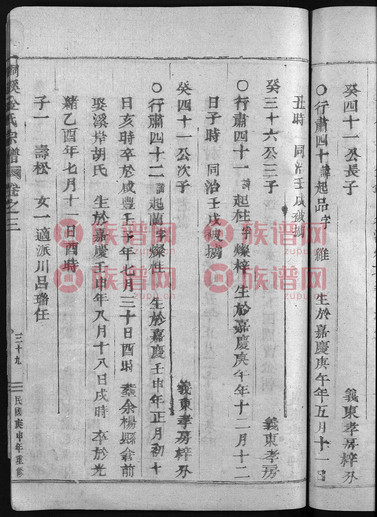 癸四十一公長子
義東孝房梓外
○行肅四十諱起品字
生於嘉慶庚午年五月十
丑時 同治壬戌被擄
癸三十六公三子
義東孝房
○行肅四十一 諱起柱字燦梓 生於嘉慶庚午年十二月十二
日子時 同治壬戌被擄
癸四十一公次子
義東孝房梓外
○行肅四十二 諱起蘭字燦性 生於嘉慶壬申年正月初十
日亥時卒於咸豐壬子年七月三十日酉時 葬余楊縣俞前
娶溪岸胡氏 生於嘉慶壬申年八月十八日戌時 卒於光
緒乙酉年七月十一日酉時
子一 壽松 女一適派川呂
氏宗譜 卷之三
三十九
民國庚申年重修
族谱网
zupu.cn